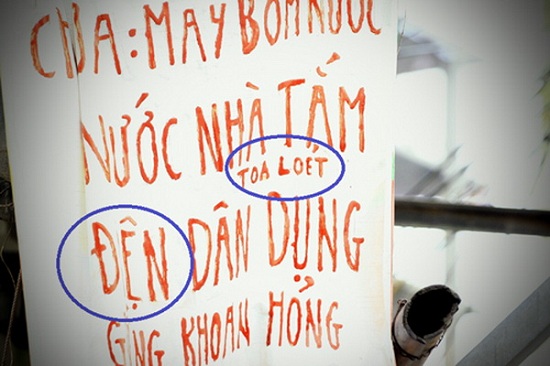 CHA: MAY BƠM NƯỚC
NƯỚC NHÀ TẮM
TOA LOÉT
ĐỆN DÂN DỤNG
KHOAN HỎNG